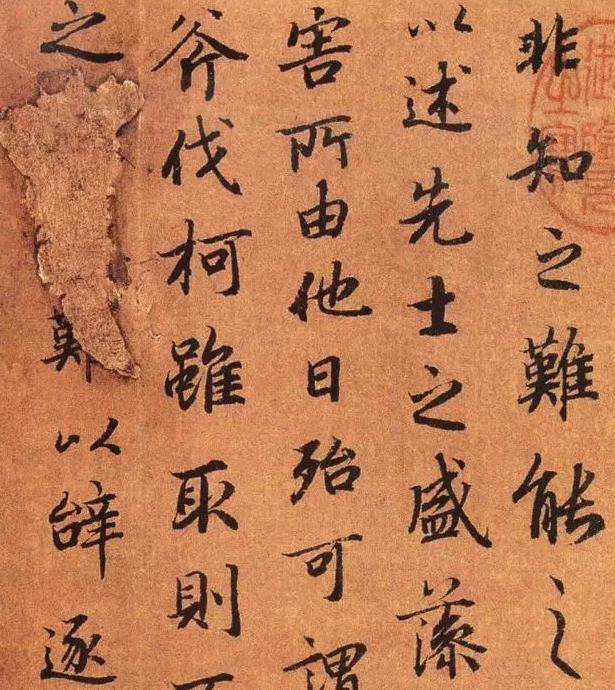 非知之難能之
以述先士之盛藻
害所由他日殆可謂
斧伐柯雖取則不
之難以辝逐